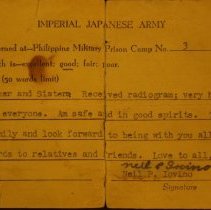 IMPERIAL JAPANESE ARMY
rned at—Philippine Military Prison Camp No. 3
th is—excellent; good; fair; poor.
(50 words limit)
er and Sister: Received radiogram; very
everyone. Am safe and in good spirits.
ily and look forward to being with you al
rds to relatives and friends. Love to all,
Neil P Iovino
Neil P. Iovino
Signature